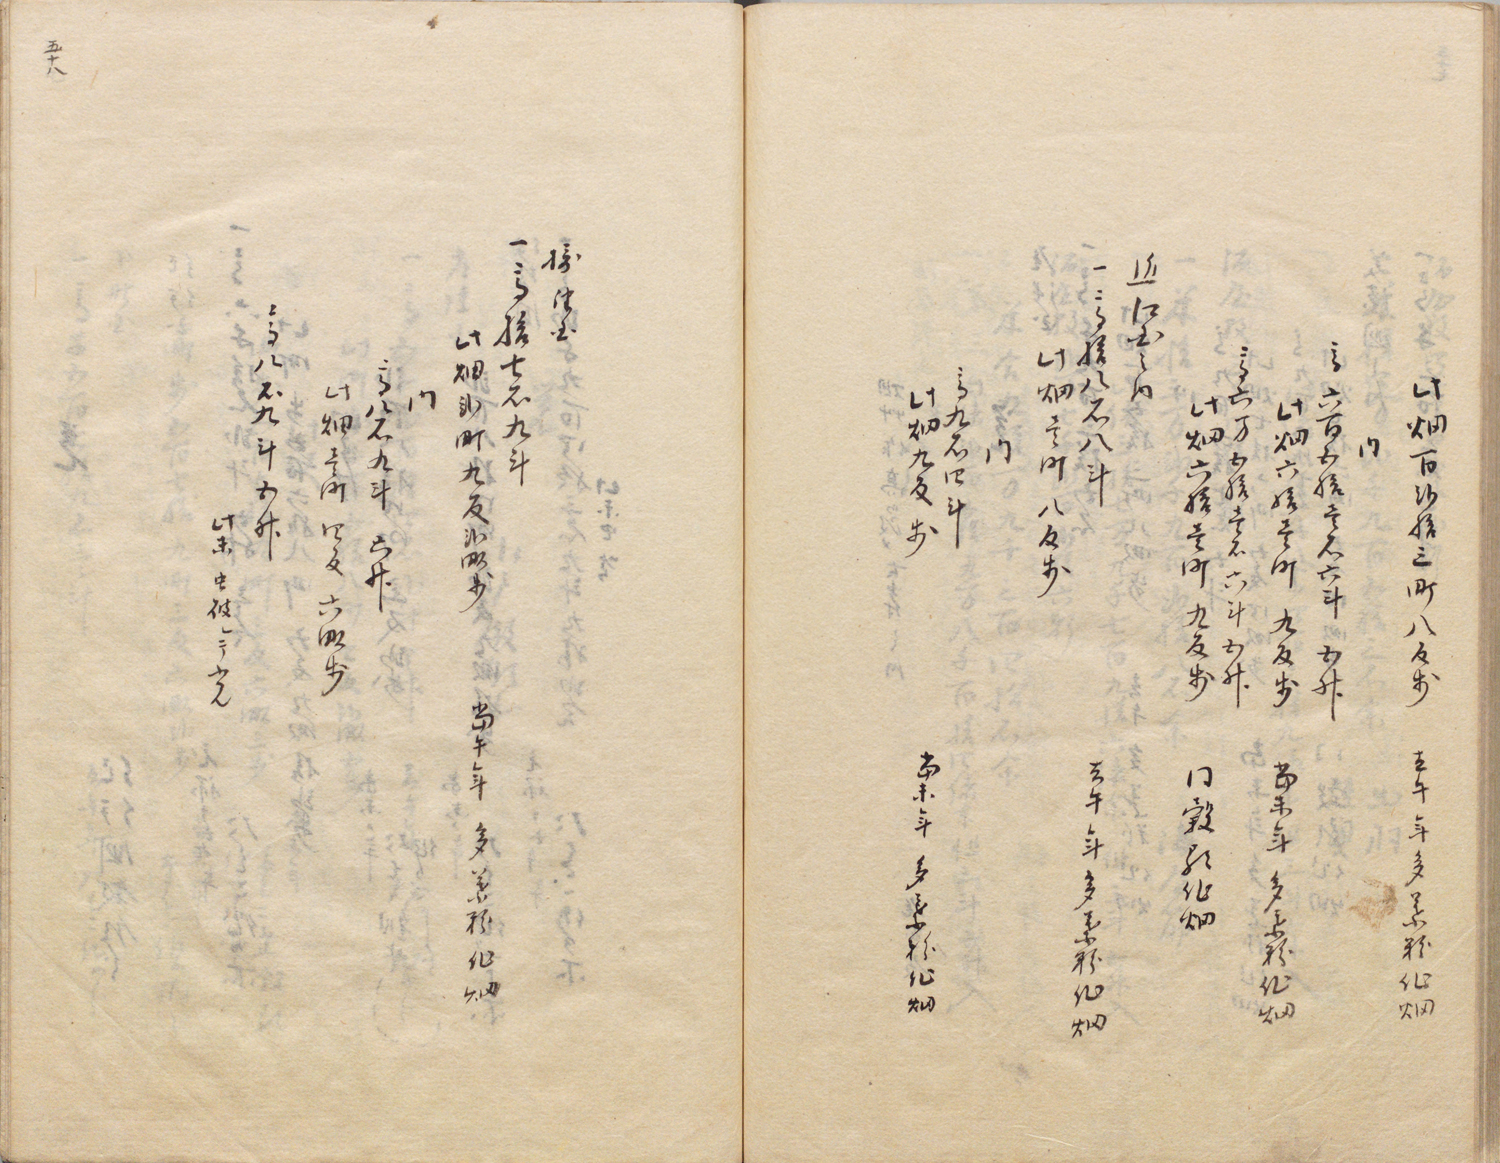 此畑百弐拾三町八反歩 去午年多葉粉作畑
内
高六百五拾壱石六斗五升
此畑六拾壱町九反歩 当未年多葉粉作畑
高六百五拾壱石六斗五升
此畑六拾壱町九反歩 同穀類作畑
近江国之内
一高拾八石八斗
此畑壱町八反歩 去午年多葉粉作畑
内
高九石四斗
此畑九反歩 当未年多葉粉作畑
摂津国
一高拾七石九斗
此畑弐町九反弐畝歩 当午年多葉粉作畑
内
高八石九斗六升
此畑壱町四反六畝歩
高八石九斗五升
此未
五十八